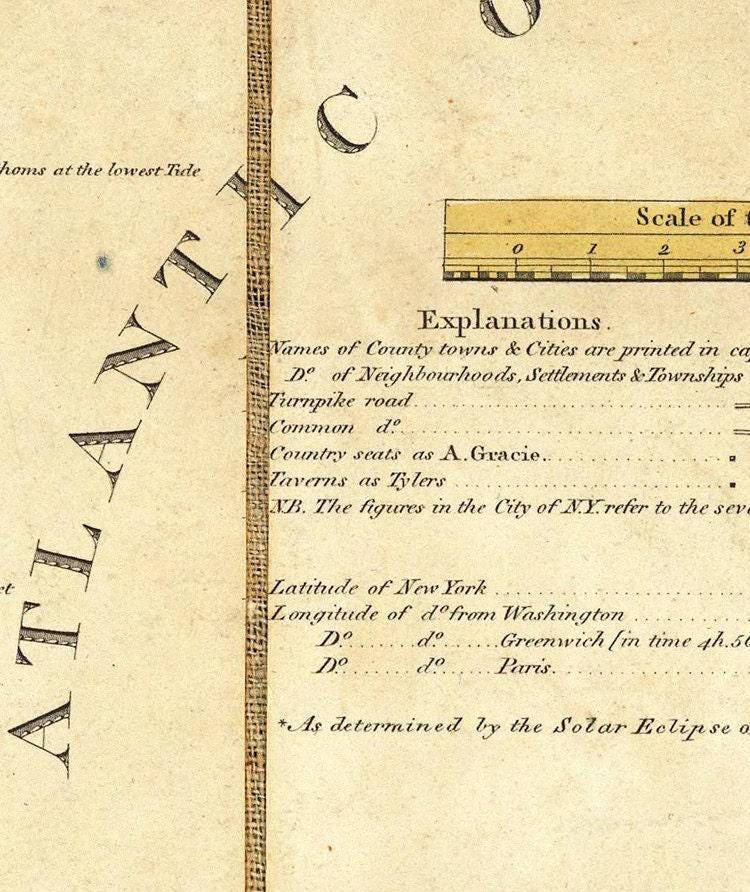 ATLANTIC O
homs at the lowest Tide
Scale of
0 1 2 3
Explanations.
Names of County towns & Cities are printed in ca
Do. of Neighbourhoods, Settlements & Townships
Turnpike road
Common do.
Country seats as A. Gracie.
Taverns as Tylers
NB. The figures in the City of N.Y. refer to the sev
Latitude of New York
Longitude of do. from Washington
Do. do. Greenwich [in time 4h.56
Do. do. Paris.
*As determined by the Solar Eclipse o